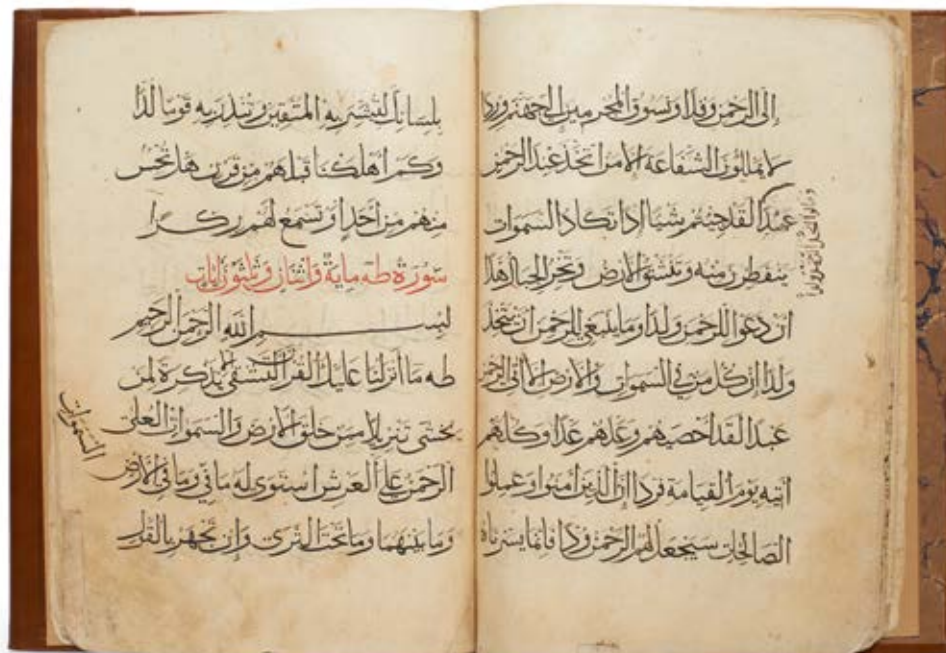 إلى الرحمن وفدا ونسوق المجرمين الى جهنم وردا
لا يملكون الشفاعة الا من اتخذ عند الرحمن
عهدا لقد جئتم شيئا ادا تكاد السموات
وقالوا اتخذ الرحمن ولدا
يتفطرن منه وتنشق الارض وتخر الجبال هدا
ان دعوا للرحمن ولدا وما ينبغي للرحمن ان يتخذ
ولدا ان كل من في السموات والارض الا اتى الرحمن
عبدا لقد احصيهم وعدهم عدا وكلهم
اتيه يوم القيامة فردا ان الذين امنوا وعملوا
الصالحات سيجعل لهم الرحمن ودا فانما يسرناه
بلسانك لتبشر به المتقين وتنذر به قوما لدا
وكم اهلكنا قبلهم من قرن هل تحس
منهم من احد او تسمع لهم ركزا
سورة طه ماية واثنان وثلثون ايات
بسم الله الرحمن الرحيم
طه ما انزلنا عليك القران لتشقى الا تذكرة لمن
يخشى تنزيلا ممن خلق الارض والسموات العلى
الرحمن على العرش استوى له ما في وما في الارض
السموات
وما بينهما وما تحت الثرى وان تجهر بالقول